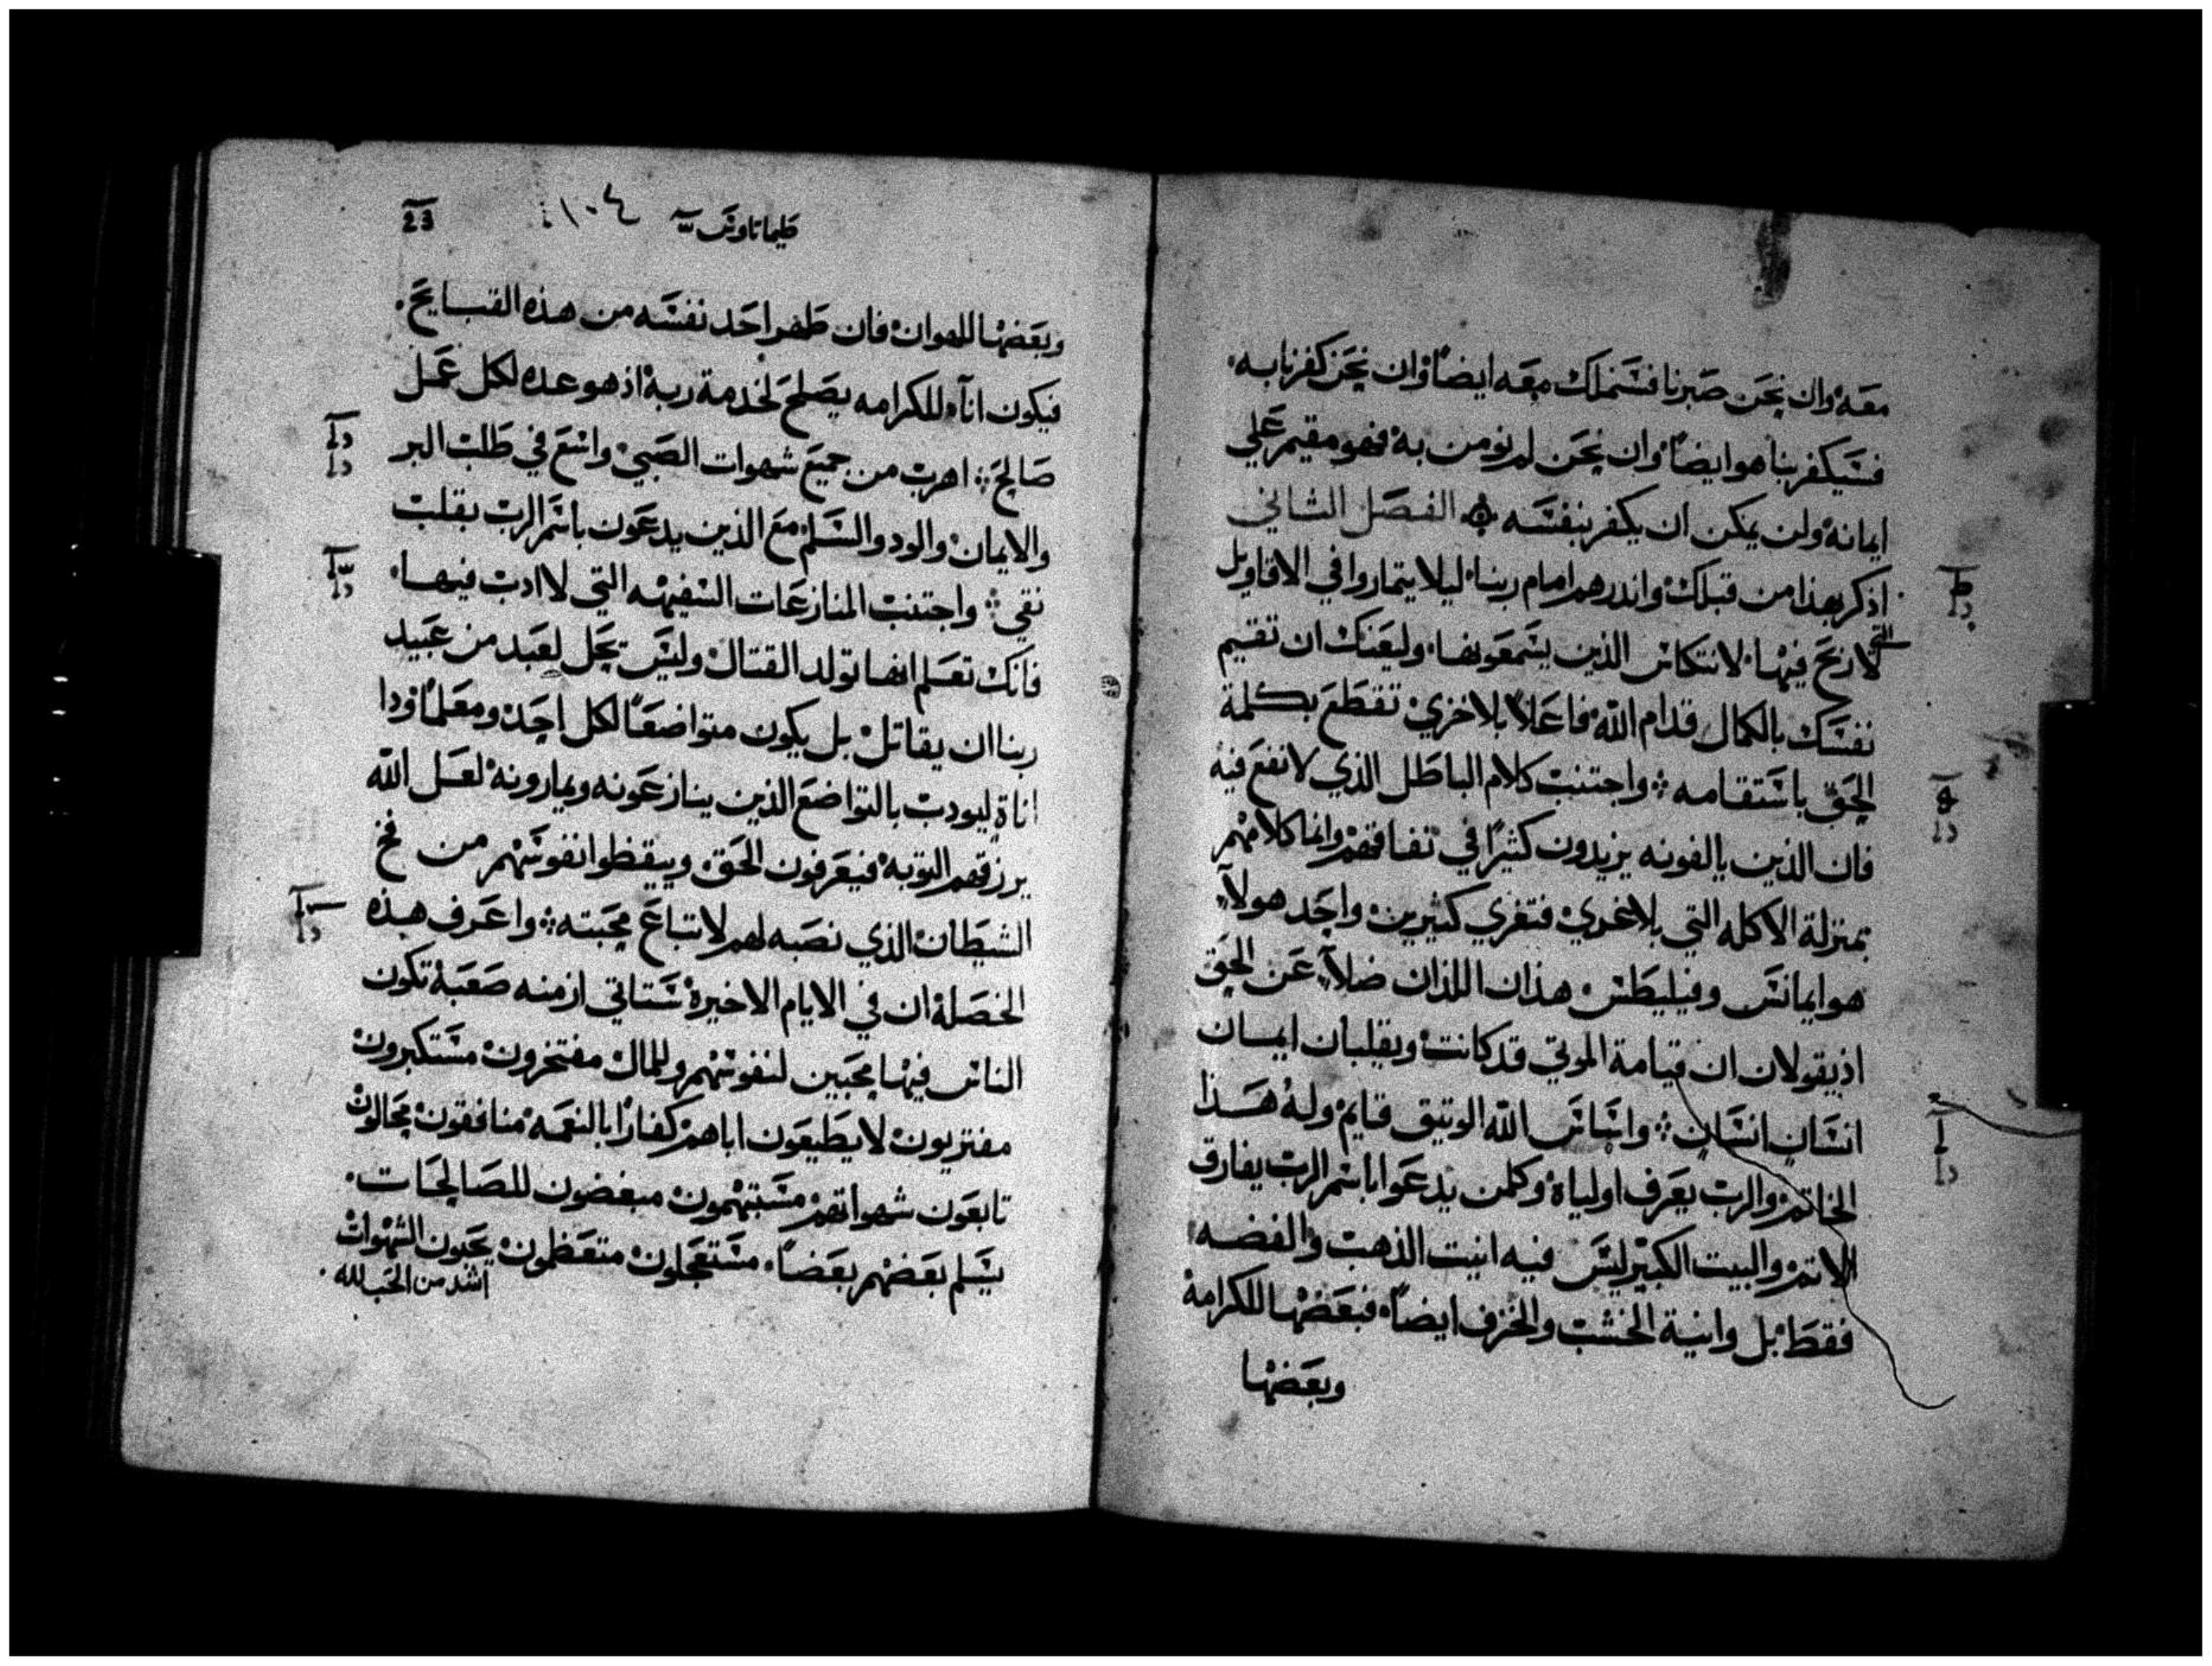 معه وان نحن صبرنا فسنملك معه ايضا وان نحن كفرنا به
فسيكفر بنا هو ايضا وان نحن لم نومن به فهو مقيم علي
ايمانه ولن يمكن ان يكفر بنفسه الفصل الثاني
اذكر بهذا من قبلك واندرهم امام ربنا ليلا يتماروا في الاقاويل
التي
لا ربح فيها لانتكاس الذين يسمعونها وليعنك ان تقيم
نفسك بالكمال قدام الله فاعلا بلا خزي تقطع بكلمة
الحق باستقامه واجتنب كلام الباطل الذي لا نفع فيه
فان الذين يالفونه يزيدون كثيرا في نفاقهم وانما كلامهم
بمنزلة الاكله التي بلا خدي فتغري كثيرين واحد هولاء
هو ايمانس وفيليطس هذان اللذان ضلا عن الحق
اذ يقولان ان قيامة الموتي قد كانت ويقلبان ايمان
انسان انسان واساس الله الوتيق قايم وله هذا
الخاتم والرب يعرف اولياه وكلمن يدعوا باسم الرب يفارق
الاتم والبيت الكبير ليس فيه انيت الذهب والفضه
فقط بل وانية الخشب والخزف ايضا فبعضها للكرامة
وبعضها
طيماتاوس ١٠٤ 23
وبعضها للهوان فان طهر احد نفسه من هذه القبايح
فيكون اناء للكرامه يصلح لخدمة ربه اذ هو عده لكل عمل
صالح اهرب من جميع شهوات الصبي واتبع في طلب البر
والايمان والود والسلم مع الذين يدعون باسم الرب بقلب
نقي واجتنب المنازعات السفيهه التي لا ادب فيها
فانك تعلم انها تولد القتال وليس يحل لعبد من عبيد
ربنا ان يقاتل بل يكون متواضعا لكل احد ومعلما وذا
اناة ليودب بالتواضع الذين ينازعونه ويمارونه لعل الله
يرزقهم التوبه فيعرفون الحق ويتيقظوا نفوسهم من فخ
الشيطان الذي نصبه لهم لاتباع محبته واعرف هذه
الخصلة ان في الايام الاخيرة ستاتي ازمنه صعبة تكون
الناس فيها محبين لنفوسهم وللمال مفتخرون مستكبرون
مفتريون لا يطيعون اباهم كفارا بالنعمه منافقون محالون
تابعون شهواتهم مستهمون مبغضون للصالحات
يسلم بعضهم بعضا مستعجلون متعظمون يحبون الشهوات
اشد من الحب لله